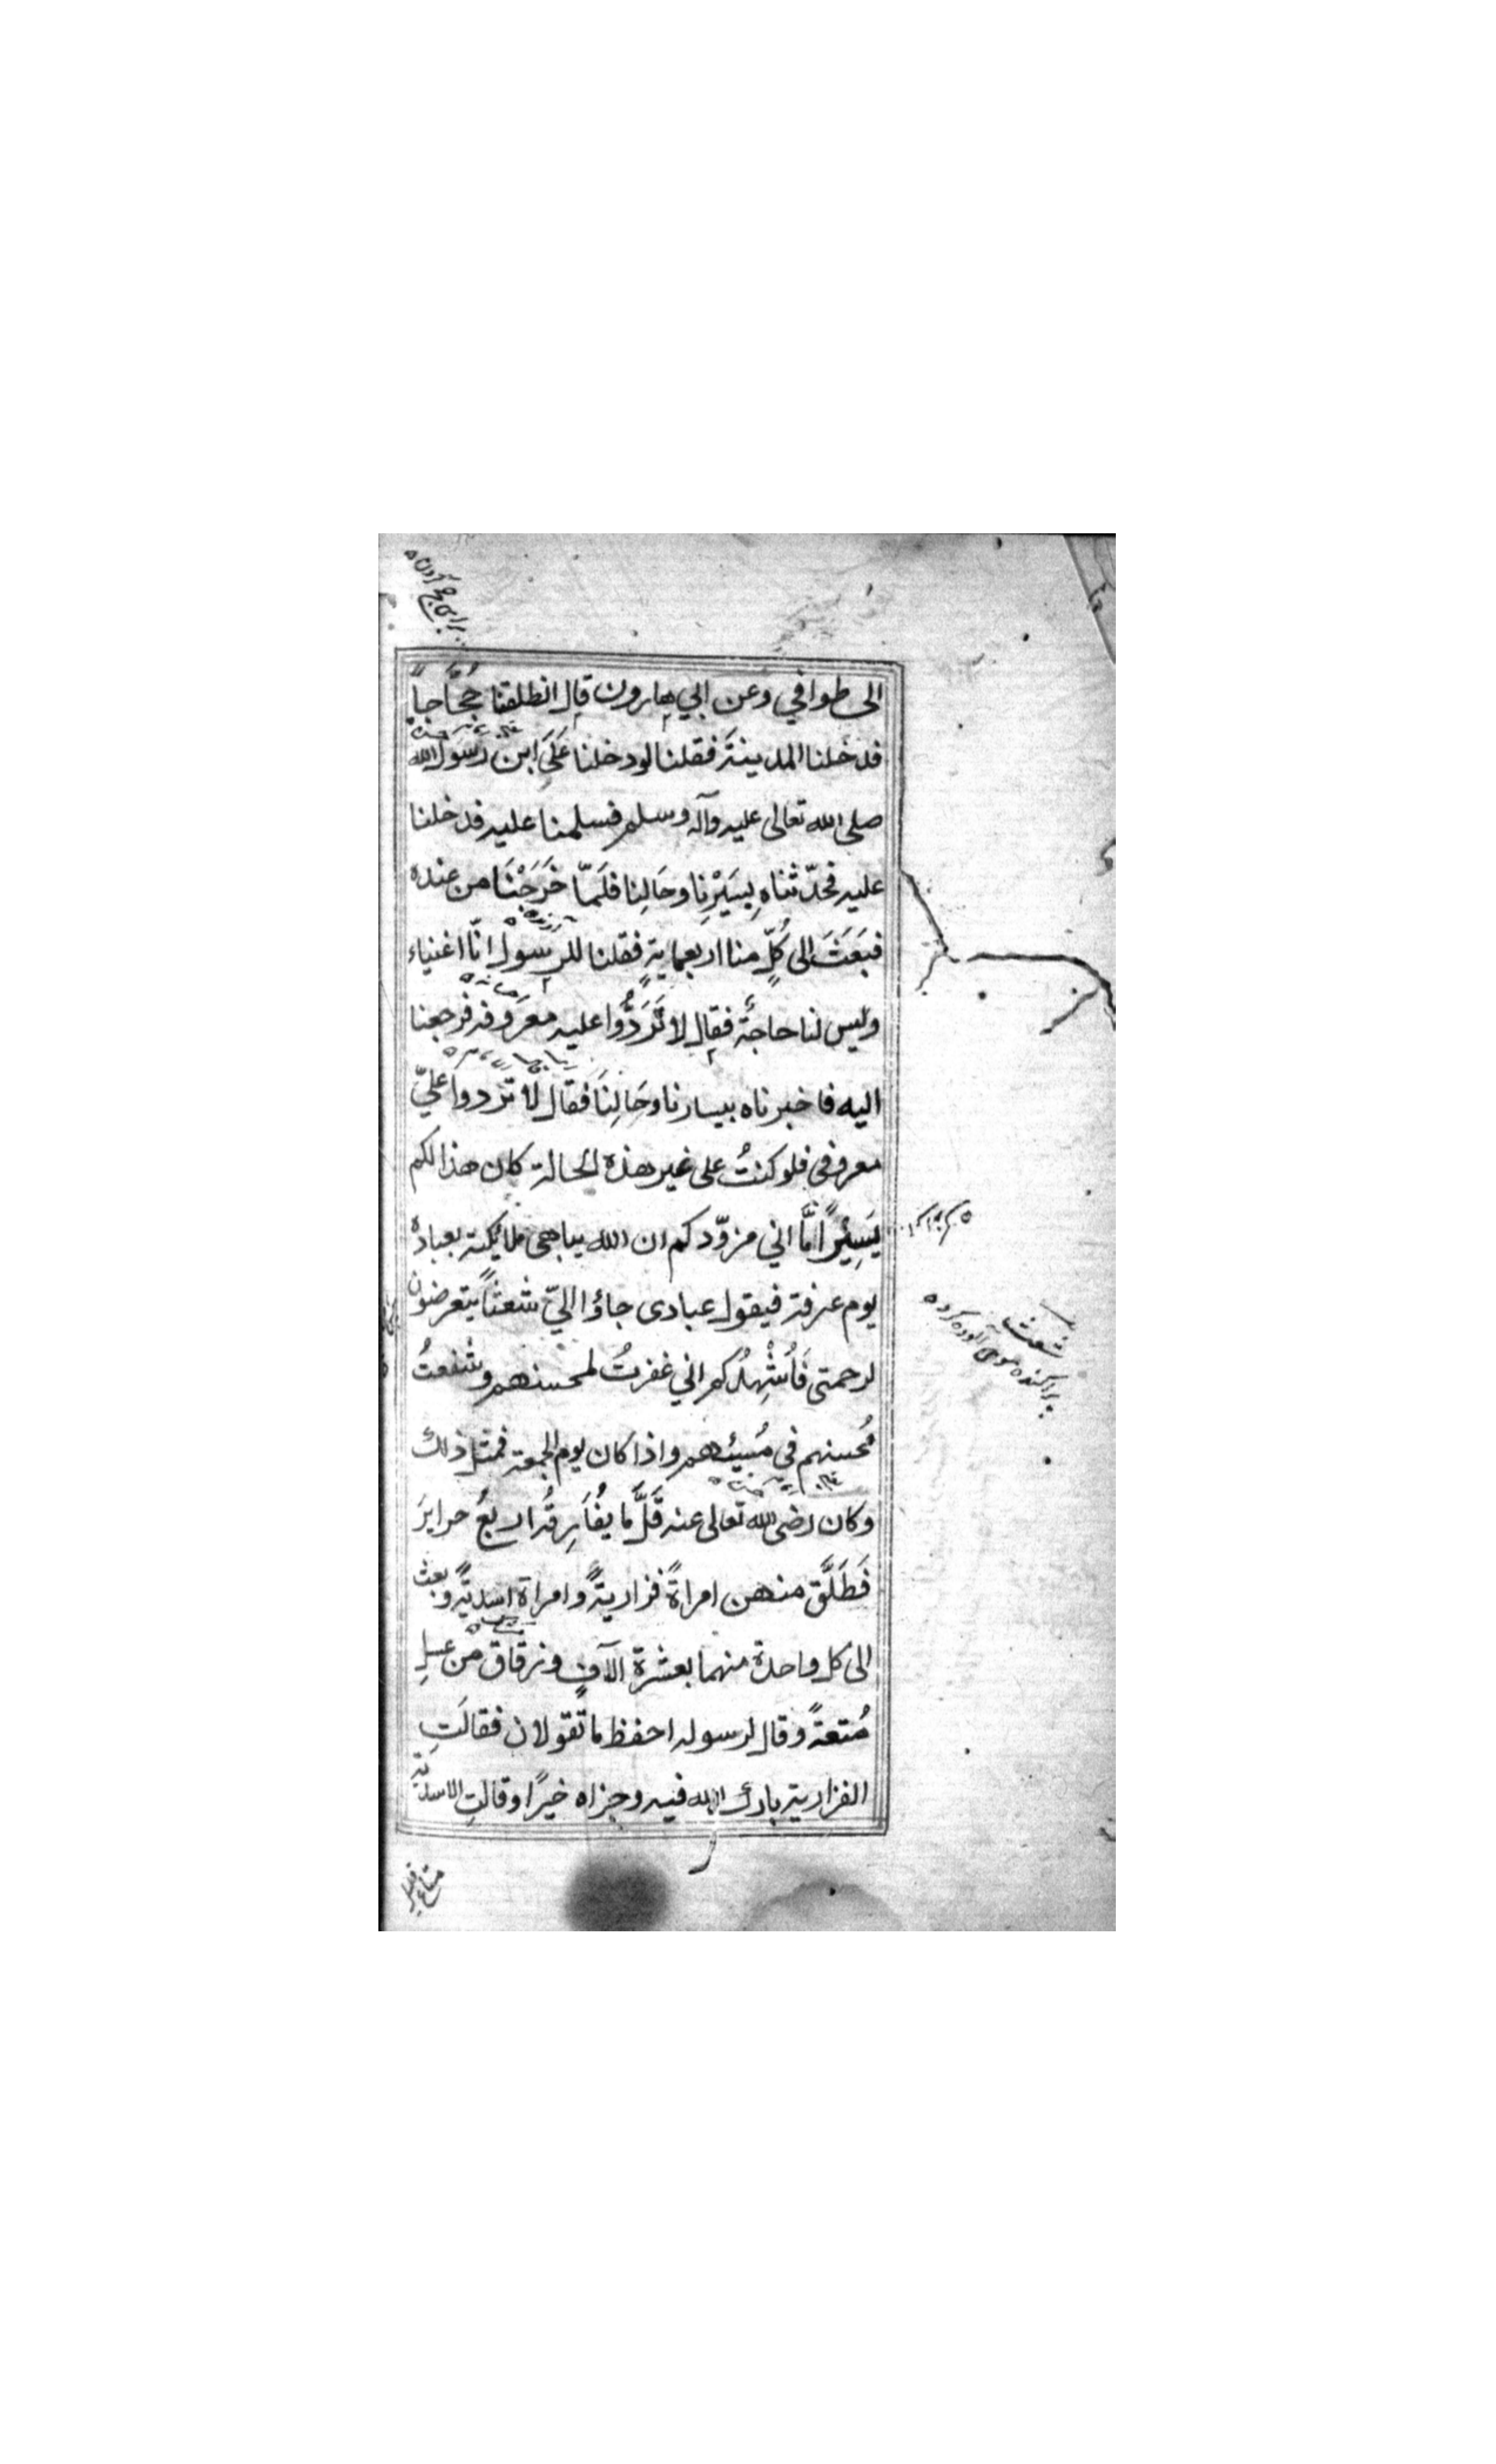 برای حج کردن
الى طوافي وعن ابي هارون قال انطلقنا حُجَّاجاً
فدخلنا المدينةَ فقلنا لو دخلنا عَلَى ابن رسول الله
صلى الله تعالى عليه وآله وسلم فسلمنا عليه فدخلنا
عليه فحدّثناه بِسَيْرِنا وحَالِنا فلَمّا خَرَجْنَا من عنده
فبَعَثَ الى كُلٍّ منا اربعماية فقلنا للرسول انّا اغنياء
وليس لنا حاجةٌ فقال لا تَرُدُّوا عليه معروفه فرجعنا
اليه فاخبرناه بيسارنا وحَالِنَا فقال لا تردوا عليّ
معروفي فلو كنتُ على غير هذه الحالة كان هذا لكم
يَسِيْراً امَّا اني مزوّدكم ان الله يباهى ملائكته بعباده
يوم عرفة فيقول عبادى جاؤا اليّ شعثاً يتعرضون
لرحمتى فَاُشْهِدُكم اني غفرتُ لمحسنهم وشفعتُ
مُحسنهم في مُسيئهم واذا كان يوم الجمعة فمثل ذلك
وكان رضى الله تعالى عنه قَلَّ ما يُفَارِقُه اربعُ حرايرَ
فَطَلَّق منهن امراةً فزاريةً وامراة اسديةً وبعث
الى كل واحدة منهما بعشرة الآفٍ وزقاق من عسلٍ
مُتعةً وقال لرسوله احفظ ما تقولان فقالَتِ
الفزارية بارك الله فيه وجزاه خيرًا وقالتِ الاسديّة
شعث
پراکنده موی آلوده کرده
متاع قلیل